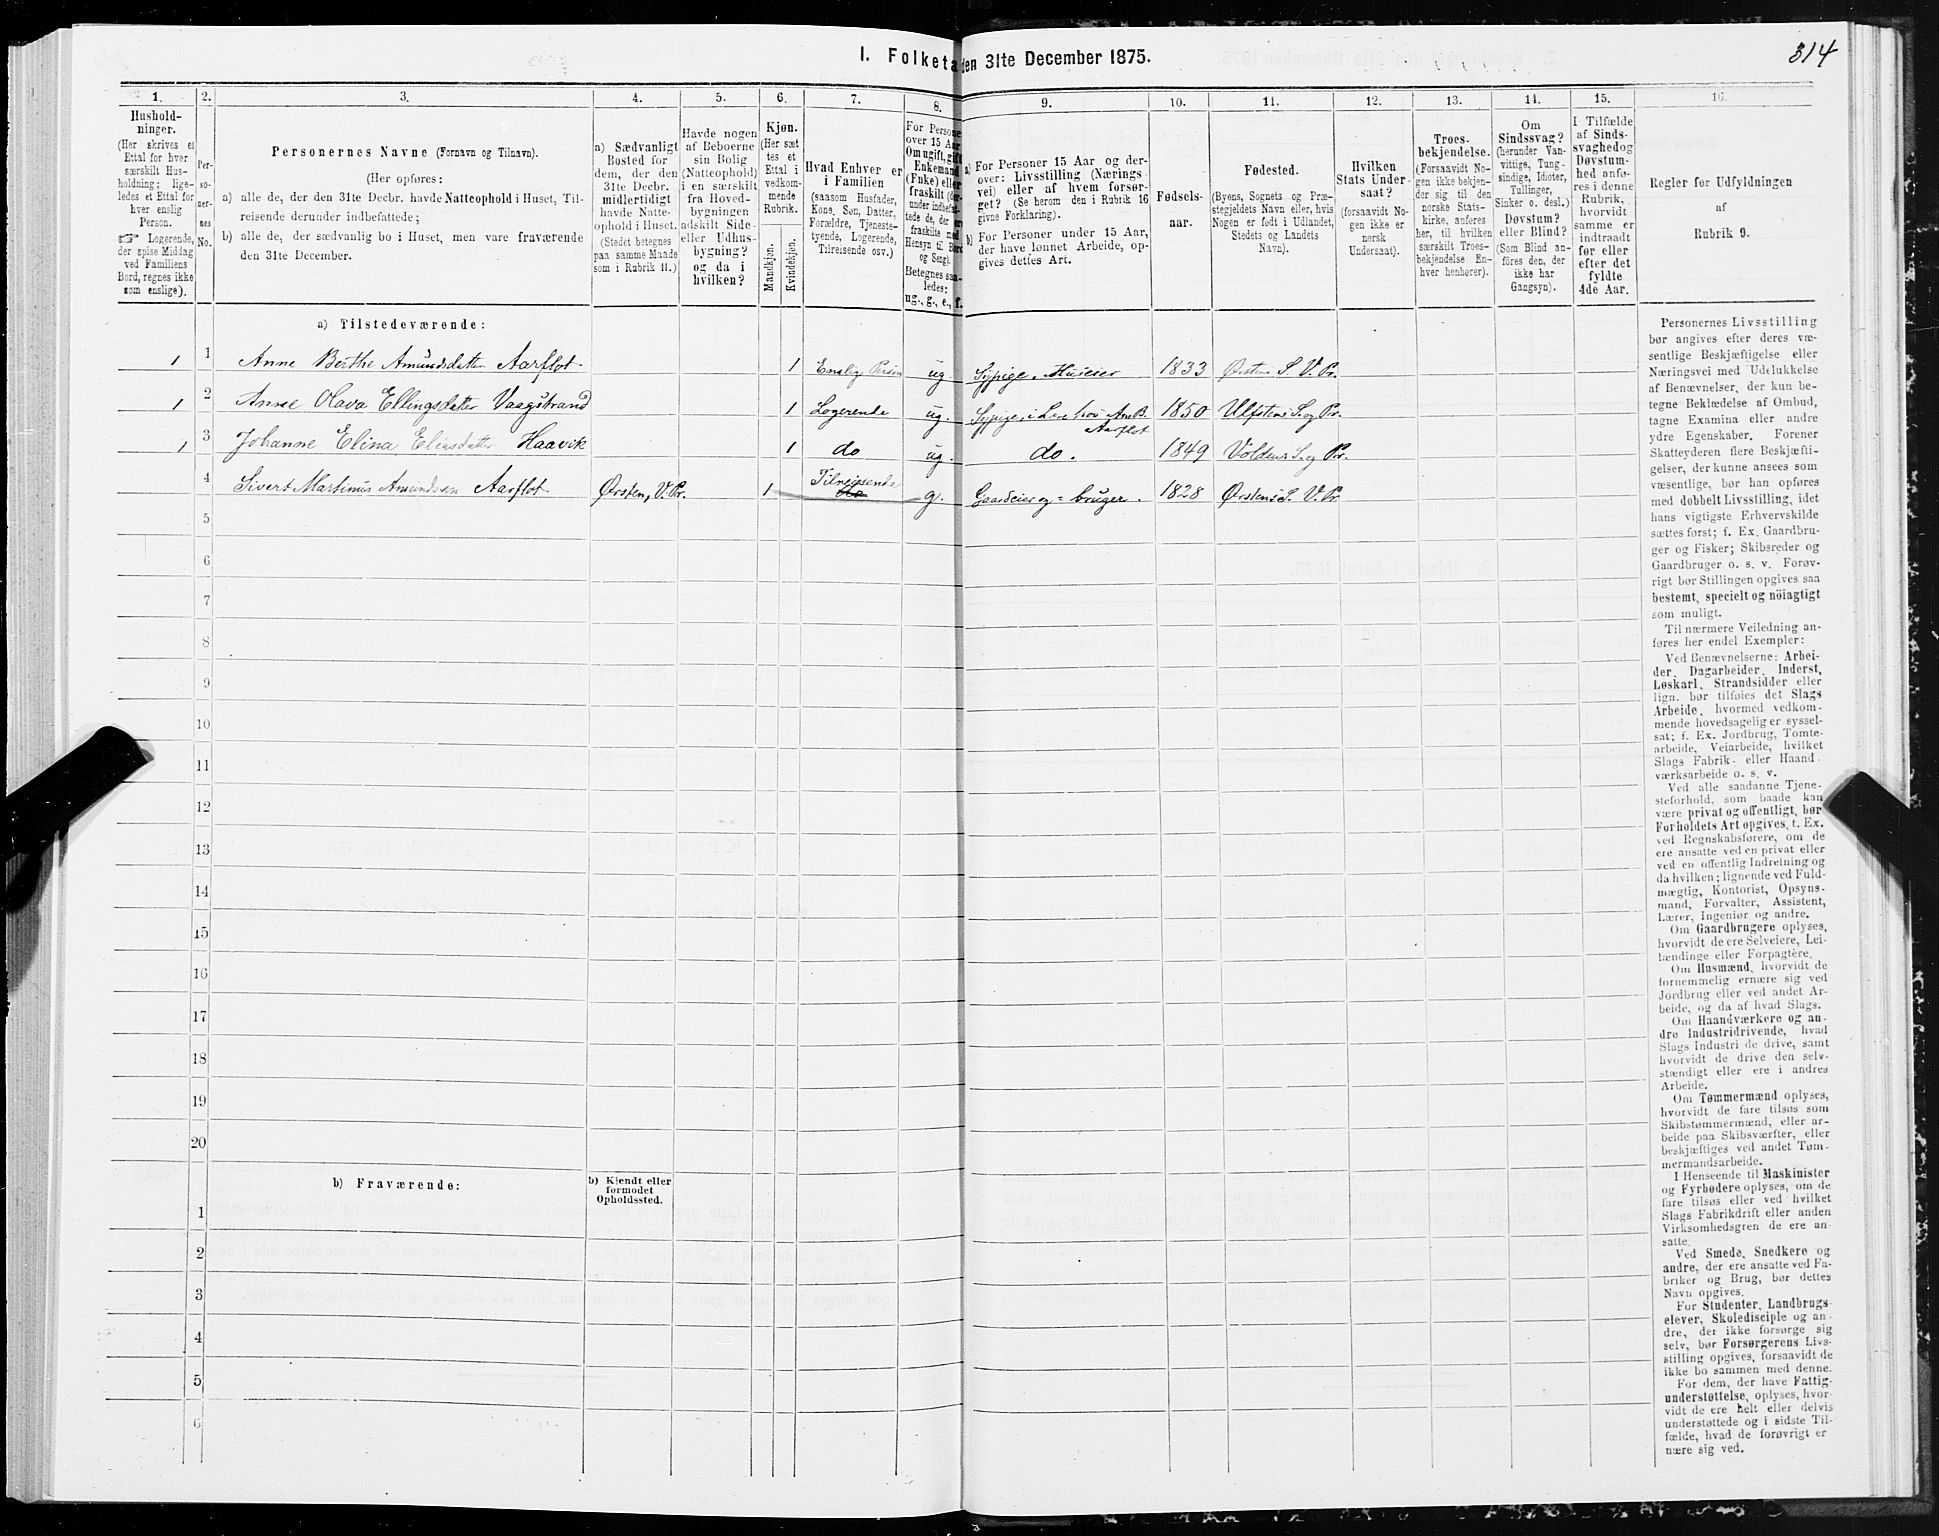 I. Folketa den 31te December 1875.
314
1.
Hushold-
ninger.
(Her skrives et
Ettal for hver
særskilt Hus-
holdning; lige-
ledes et Ettal for
hver enslig
Person.
☞ Logerende,
der spise Middag
ved Familiens
Bord, regnes ikke
som enslige).
2.
Per-
so-
ner-
nes
No.
3.
Personernes Navne (Fornavn og Tilnavn).
(Her opføres:
a) alle de, der den 31te Decbr. havde Natteophold i Huset, Til-
reisende derunder indbefattede;
b) alle de, der sædvanlig bo i Huset, men vare fraværende
den 31te December.
4.
a) Sædvanligt
Bosted for
dem, der den
31te Decbr.
midlertidigt
havde Natte-
ophold i Huset.
(Stedet betegnes
paa samme Maade
som i Rubrik 11.)
5.
Havde nogen
af Beboerne
sin Bolig
(Natteophold)
i en særskilt
fra Hoved-
bygningen
adskilt Side-
eller Udhus-
bygning?
og da i
hvilken?
6.
Kjøn.
(Her sæt-
tes et
Ettal i
vedkom-
mende
Rubrik.
Mandkjøn.
Kvindekjøn.
7.
Hvad Enhver er
i Familien
(saasom Husfader,
Kone, Søn, Datter,
Forældre, Tjeneste-
tyende, Logerende,
Tilreisende osv.)
8.
For Persone
over 15 Aar
Om ugift, gift
Enkemand
(Enke) eller
fraskilt (der-
under indbefat-
tede de, der ere
fraskilte med
Hensyn til Bord
og Seng).
Betegnes saa-
ledes:
ug., g., e., f.
9.
a) For Personer 15 Aar og der-
over: Livsstilling (Nærings-
vei) eller af hvem forsør-
get? (Se herom den i Rubrik 16
givne Forklaring).
b) For Personer under 15 Aar,
der have lønnet Arbeide, op-
gives dettes Art.
10.
Fødsels-
aar.
11.
Fødested.
(Byens, Sognets og Præ-
stegjeldets Navn eller, hvis
Nogen er født i Udlandet,
Stedets og Landets
Navn).
12.
Hvilken
Stats Under-
saat?
(forsaavidt No-
gen ikke er
norsk
Undersaat).
13.
Troes-
bekjendelse.
(Forsaavidt No-
gen ikke bekjen-
der sig til den
norske Stats-
kirke, anføres
her, til hvilken
særskilt Troes-
bekjendelse En-
hver henhører).
14.
Om
Sindssvag?
(herunder Van-
vittige, Tung-
sindige, Idioter,
Tullinger,
Sinker o. desl.)
Døvstum?
eller Blind?
(Som Blind an-
føres den, der
ikke har
Gangsyn).
15.
I Tilfælde
af Sinds-
svaghed og
Døvstum-
hed anfø-
res i denne
Rubrik,
hvorvidt
samme er
indtraadt
før eller
efter det
fyldte
4de Aar.
16.
Regler for Udfyldningen
af
Rubrik 9.
a) Tilstedeværende:
1 1 Anne Berthe Amundsdatter Aarflot 1 Enslig Person ug. Sypige, Huseier 1833 Ørsten S. V. Pr.
1 2 Anne Olava Ellingsdatter Vaagstrand 1 Logerende ug. Sypige, i Lære hos An. B. Aarflot 1850 Ulfstens S. og Pr.
1 3 Johanne Elina Eliasdatter Haavik 1 do ug. do. 1849 Voldens S. og Pr.
4 Sivert Martinus Amundsen Aarflot Ørsten, V. Pr. 1 Tilreisende do g. Gaardeier og = bruger. 1828 Ørstens S. V. Pr.
5
6
7
8
9
10
11
12
13
14
15
16
17
18
19
20
b) Fraværende:
b) Kjendt eller
formodet
Opholdssted.
1
2
3
4
5
6
Personernes Livsstilling
bør angives efter deres væ-
sentlige Beskjæftigelse eller
Næringsvei med Udelukkelse
af Benævnelser, der kun be-
tegne Beklædelse af Ombud,
tagne Examina eller andre
ydre Egenskaber. Forener
Skatteyderen flere Beskjæfti-
gelser, der kunne ansees som
væsentlige, bør han opføres
med dobbelt Livsstilling, idet
hans vigtigste Erhvervskilde
sættes først; f. Ex. Gaardbru-
ger og Fisker; Skibsreder og
Gaardbruger o. s. v. Forøv-
rigt bør Stillingen opgives saa
bestemt, specielt og nöiagtigt
som muligt.
Til nærmere Veiledning an-
føres her endel Exempler:
Ved Benævnelserne: Arbei-
der, Dagarbeider, Inderst,
Løskarl, Strandsidder eller
lign. bør tilføies det Slags
Arbeide, hvormed vedkom-
mende hovedsagelig er syssel-
sat; f. Ex. Jordbrug, Tomte-
arbeide, Veiarbeide, hvilket
Slags Fabrik- eller Haand-
værksarbeide o. s. v.
Ved alle saadanne Tjene-
steforhold, som baade kan
være privat og offentligt, bør
Forholdets Art opgives, t. Ex.
ved Regnskabsførere, om de
ere ansatte ved en privat eller
ved en offentlig Indretning og
da hvilken; lignende ved Fuld-
mægtig, Kontorist, Opsyns-
mand, Forvalter, Assistent,
Lærer, Ingeniør og andre.
Om Gaardbrugere oplyses,
hvorvidt de ere Selveiere, Lei-
lændinge eller Forpagtere.
Om Husmænd, hvorvidt de
fornemmelig ernære sig ved
Jordbrug eller ved andet Ar-
beide, og da af hvad Slags.
Om Haandværkere og an-
dre Industridrivende, hvad
Slags Industri de drive, samt
hvorvidt de drive den selv-
stændigt eller ere i andres
Arbeide.
Om Tømmermænd oplyses,
hvorvidt de fare tilsøs som
Skibstømmermænd, eller ar-
beide paa Skibsværfter, eller
beskjæftiges ved andet Tøm-
mermandsarbeide.
I Henseende til Maskinister
og Fyrbødere oplyses, om de
fare tilsøs eller ved hvilket
Slags Fabrikdrift eller anden
Virksomhedsgren de ere an-
satte.
Ved Smede, Snedkere og
andre, der ere ansatte ved Fa-
briker og Brug, bør dettes
Navn opgives.
For Studenter, Landbrugs-
elever, Skoledisciple og an-
dre, der ikke forsørge sig
selv, bør Forsørgerens Livs-
stilling opgives, forsaavidt de
ikke bo sammen med denne.
For dem, der have Fattig-
understøttelse, oplyses, hvor-
vidt de ere helt eller delvis
understøttede og i sidste Til-
fælde, hvad de forøvrigt er-
nære sig ved.